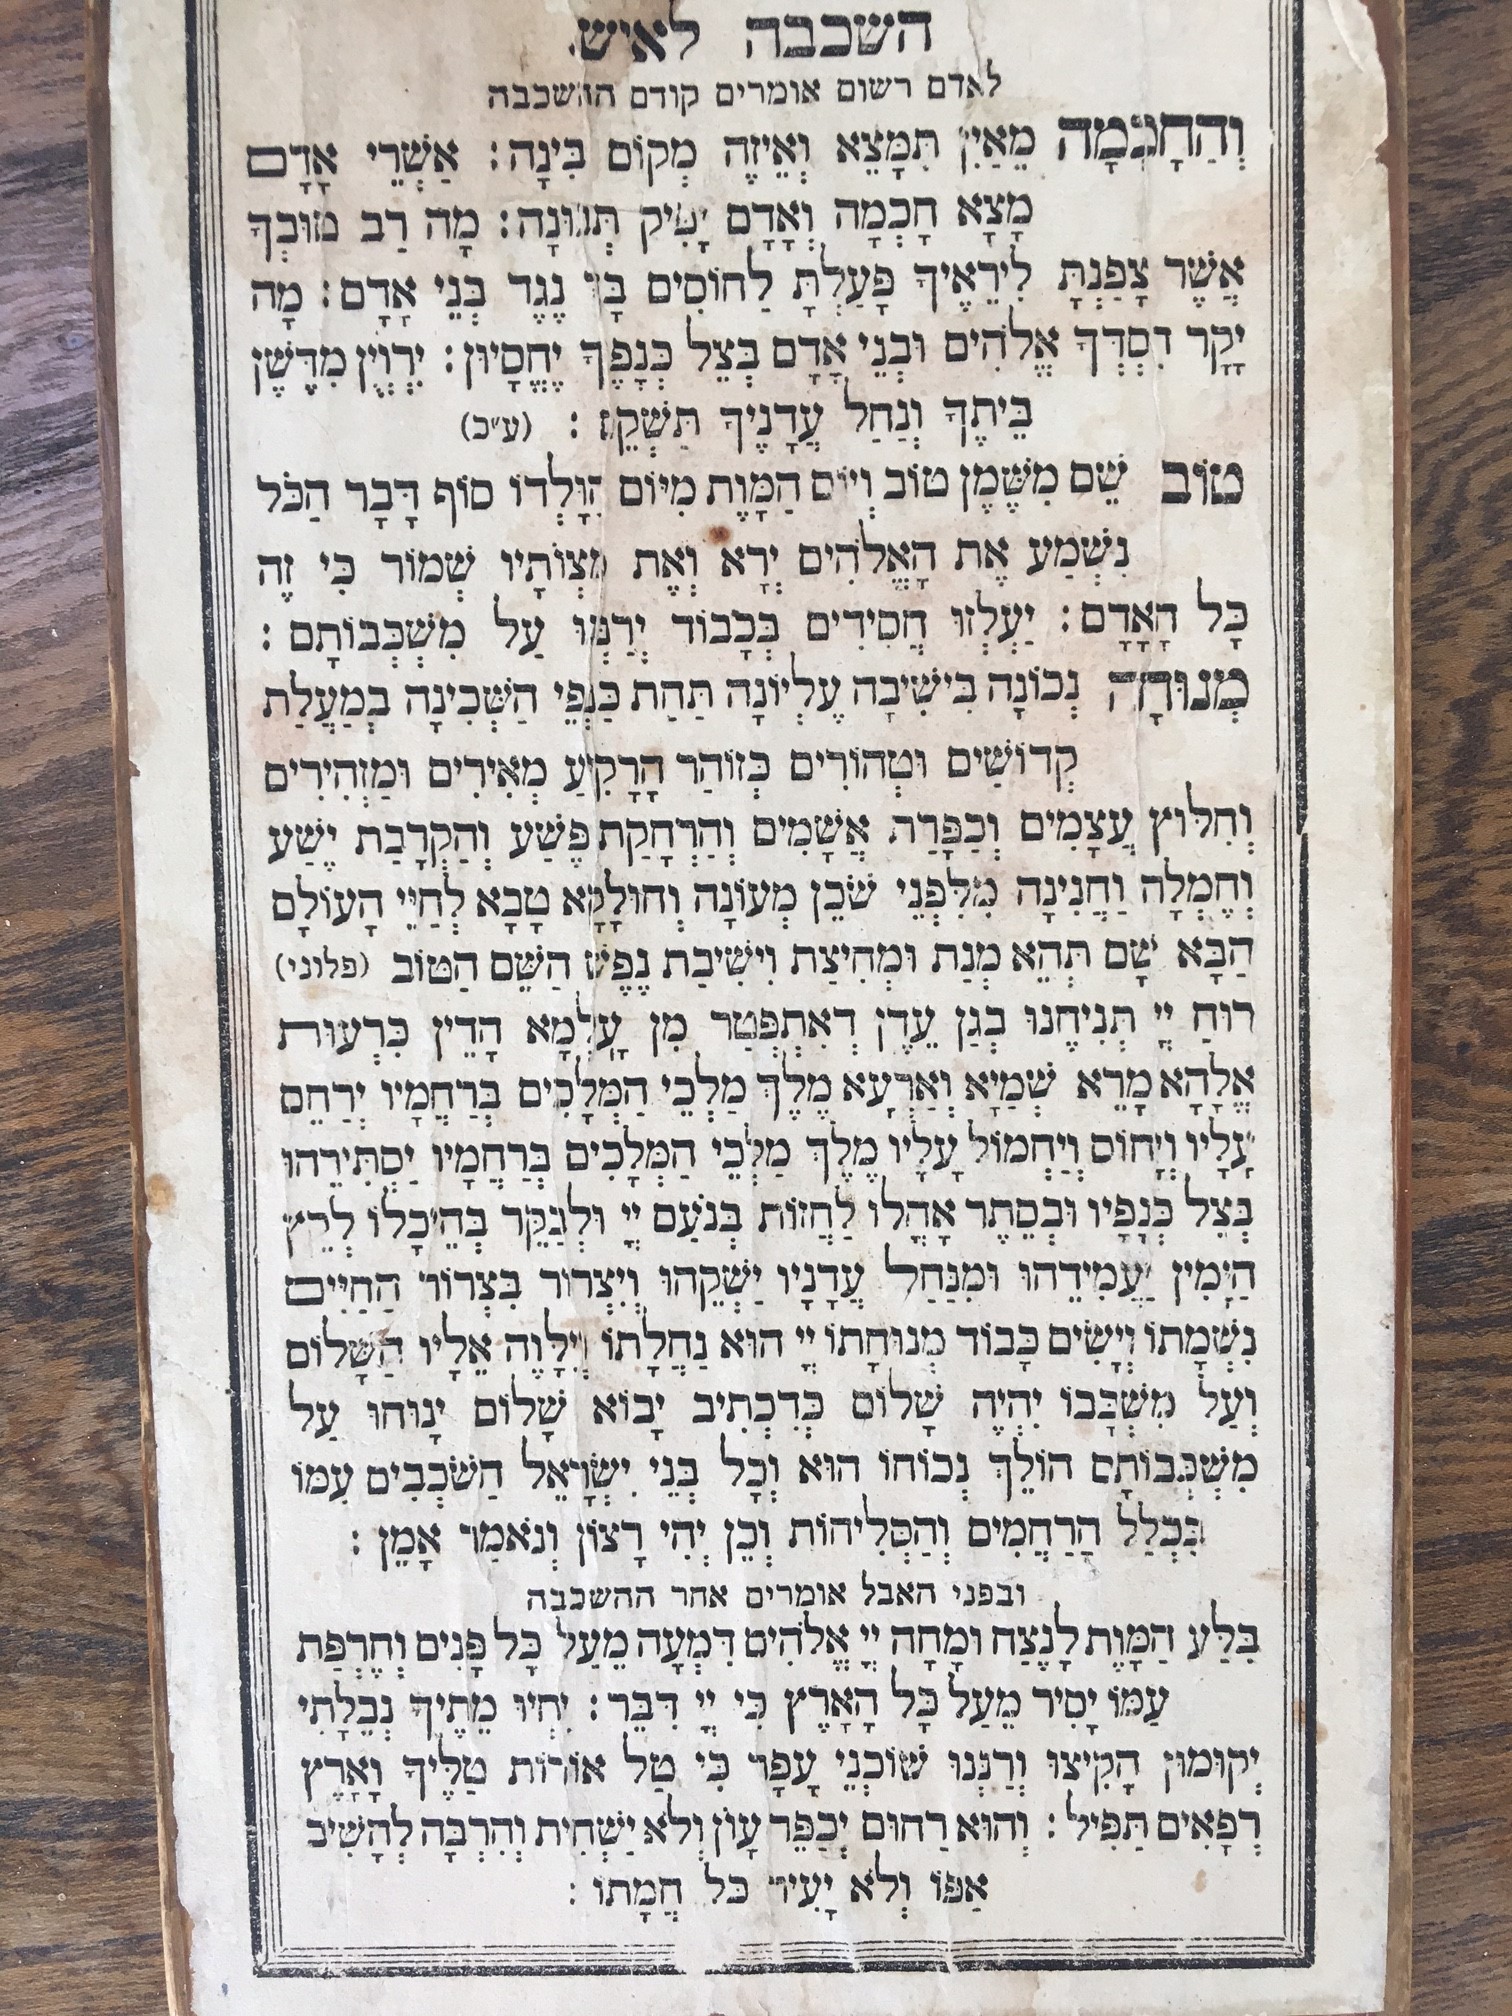 השכבה לאיש.
לאדם רשום אומרים קודם ההשכבה
וְהַחָכְמָה מֵאַיִן תִּמָּצֵא וְאֵיזֶה מְקוֹם בִּינָה: אַשְׁרֵי אָדָם
מָצָא חָכְמָה וְאָדָם יָפִיק תְּבוּנָה: מָה רַב טוּבְךָ
אֲשֶׁר צָפַנְתָּ לִירֵאֶיךָ פָּעַלְתָּ לַחוֹסִים בָּךְ נֶגֶד בְּנֵי אָדָם: מָה
יָקָר חַסְדְּךָ אֱלֹהִים וּבְנֵי אָדָם בְּצֵל כְּנָפֶךָ יֶחֱסָיוּן: יִרְוְיֻן מִדֶּשֶׁן
בֵּיתֶךָ וְנַחַל עֲדָנֶיךָ תַשְׁקֵם: (ע״כ)
טוֹב שֵׁם מִשֶּׁמֶן טוֹב וְיוֹם הַמָּוֶת מִיּוֹם הִוָּלְדוֹ סוֹף דָּבָר הַכֹּל
נִשְׁמַע אֶת הָאֱלֹהִים יְרָא וְאֶת מִצְוֹתָיו שְׁמוֹר כִּי זֶה
כָּל הָאָדָם: יַעְלְזוּ חֲסִידִים בְּכָבוֹד יְרַנְּנוּ עַל מִשְׁכְּבוֹתָם:
מְנוּחָה נְכוֹנָה בִּישִׁיבָה עֶלְיוֹנָה תַּחַת כַּנְפֵי הַשְּׁכִינָה בְמַעֲלַת
קְדוֹשִׁים וּטְהוֹרִים כְּזוֹהַר הָרָקִיעַ מְאִירִים וּמַזְהִירִים
וְחִלּוּץ עֲצָמִים וְכַפָּרַת אֲשָׁמִים וְהַרְחָקַת פֶּשַׁע וְהַקְרָבַת יֶשַׁע
וְחֶמְלָה וַחֲנִינָה מִלִּפְנֵי שֹׁכֵן מְעוֹנָה וְחוּלָקָא טָבָא לְחַיֵּי הָעוֹלָם
הַבָּא שָׁם תְּהֵא מְנַת וּמְחִיצַת וִישִׁיבַת נֶפֶשׁ הַשֵּׁם הַטּוֹב (פלוני)
רוּחַ יְיָ תְּנִיחֶנּוּ בְגַן עֵדֶן דְאִתְפְּטַר מִן עָלְמָא הָדֵין כִּרְעוּת
אֱלָהָא מָרֵא שְׁמַיָּא וְאַרְעָא מֶלֶךְ מַלְכֵי הַמְּלָכִים בְּרַחֲמָיו יְרַחֵם
עָלָיו וְיָחוֹס וְיַחְמוֹל עָלָיו מֶלֶךְ מַלְכֵי הַמְּלָכִים בְּרַחֲמָיו יַסְתִּירֵהוּ
בְּצֵל כְּנָפָיו וּבְסֵתֶר אָהֳלוֹ לַחֲזוֹת בְּנֹעַם יְיָ וּלְבַקֵּר בְּהֵיכָלוֹ לְקֵץ
הַיָּמִין יַעֲמִידֵהוּ וּמִנַּחַל עֲדָנָיו יַשְׁקֵהוּ וְיִצְרוֹר בִּצְרוֹר הַחַיִּים
נִשְׁמָתוֹ וְיָשִׂים כָּבוֹד מְנוּחָתוֹ יְיָ הוּא נַחֲלָתוֹ וְיִלָּוֶה אֵלָיו הַשָּׁלוֹם
וְעַל מִשְׁכָּבוֹ יִהְיֶה שָׁלוֹם כְּדִכְתִיב יָבוֹא שָׁלוֹם יָנוּחוּ עַל
מִשְׁכְּבוֹתָם הוֹלֵךְ נְכוֹחוֹ הוּא וְכָל בְּנֵי יִשְׂרָאֵל הַשֹּׁכְבִים עִמּוֹ
בִּכְלַל הָרַחֲמִים וְהַסְּלִיחוֹת וְכֵן יְהִי רָצוֹן וְנֹאמַר אָמֵן:
ובפני האבל אומרים אחר ההשכבה
בִּלַּע הַמָּוֶת לָנֶצַח וּמָחָה יְיָ אֱלֹהִים דִּמְעָה מֵעַל כָּל פָּנִים וְחֶרְפַּת
עַמּוֹ יָסִיר מֵעַל כָּל הָאָרֶץ כִּי יְיָ דִּבֵּר: יִחְיוּ מֵתֶיךָ נְבֵלָתִי
יְקוּמוּן הָקִיצוּ וְרַנְּנוּ שׁוֹכְנֵי עָפָר כִּי טַל אוֹרוֹת טַלֶּיךָ וָאָרֶץ
רְפָאִים תַּפִּיל: וְהוּא רַחוּם יְכַפֵּר עָוֹן וְלֹא יַשְׁחִית וְהִרְבָּה לְהָשִׁיב
אַפּוֹ וְלֹא יָעִיר כל חֲמָתוֹ: